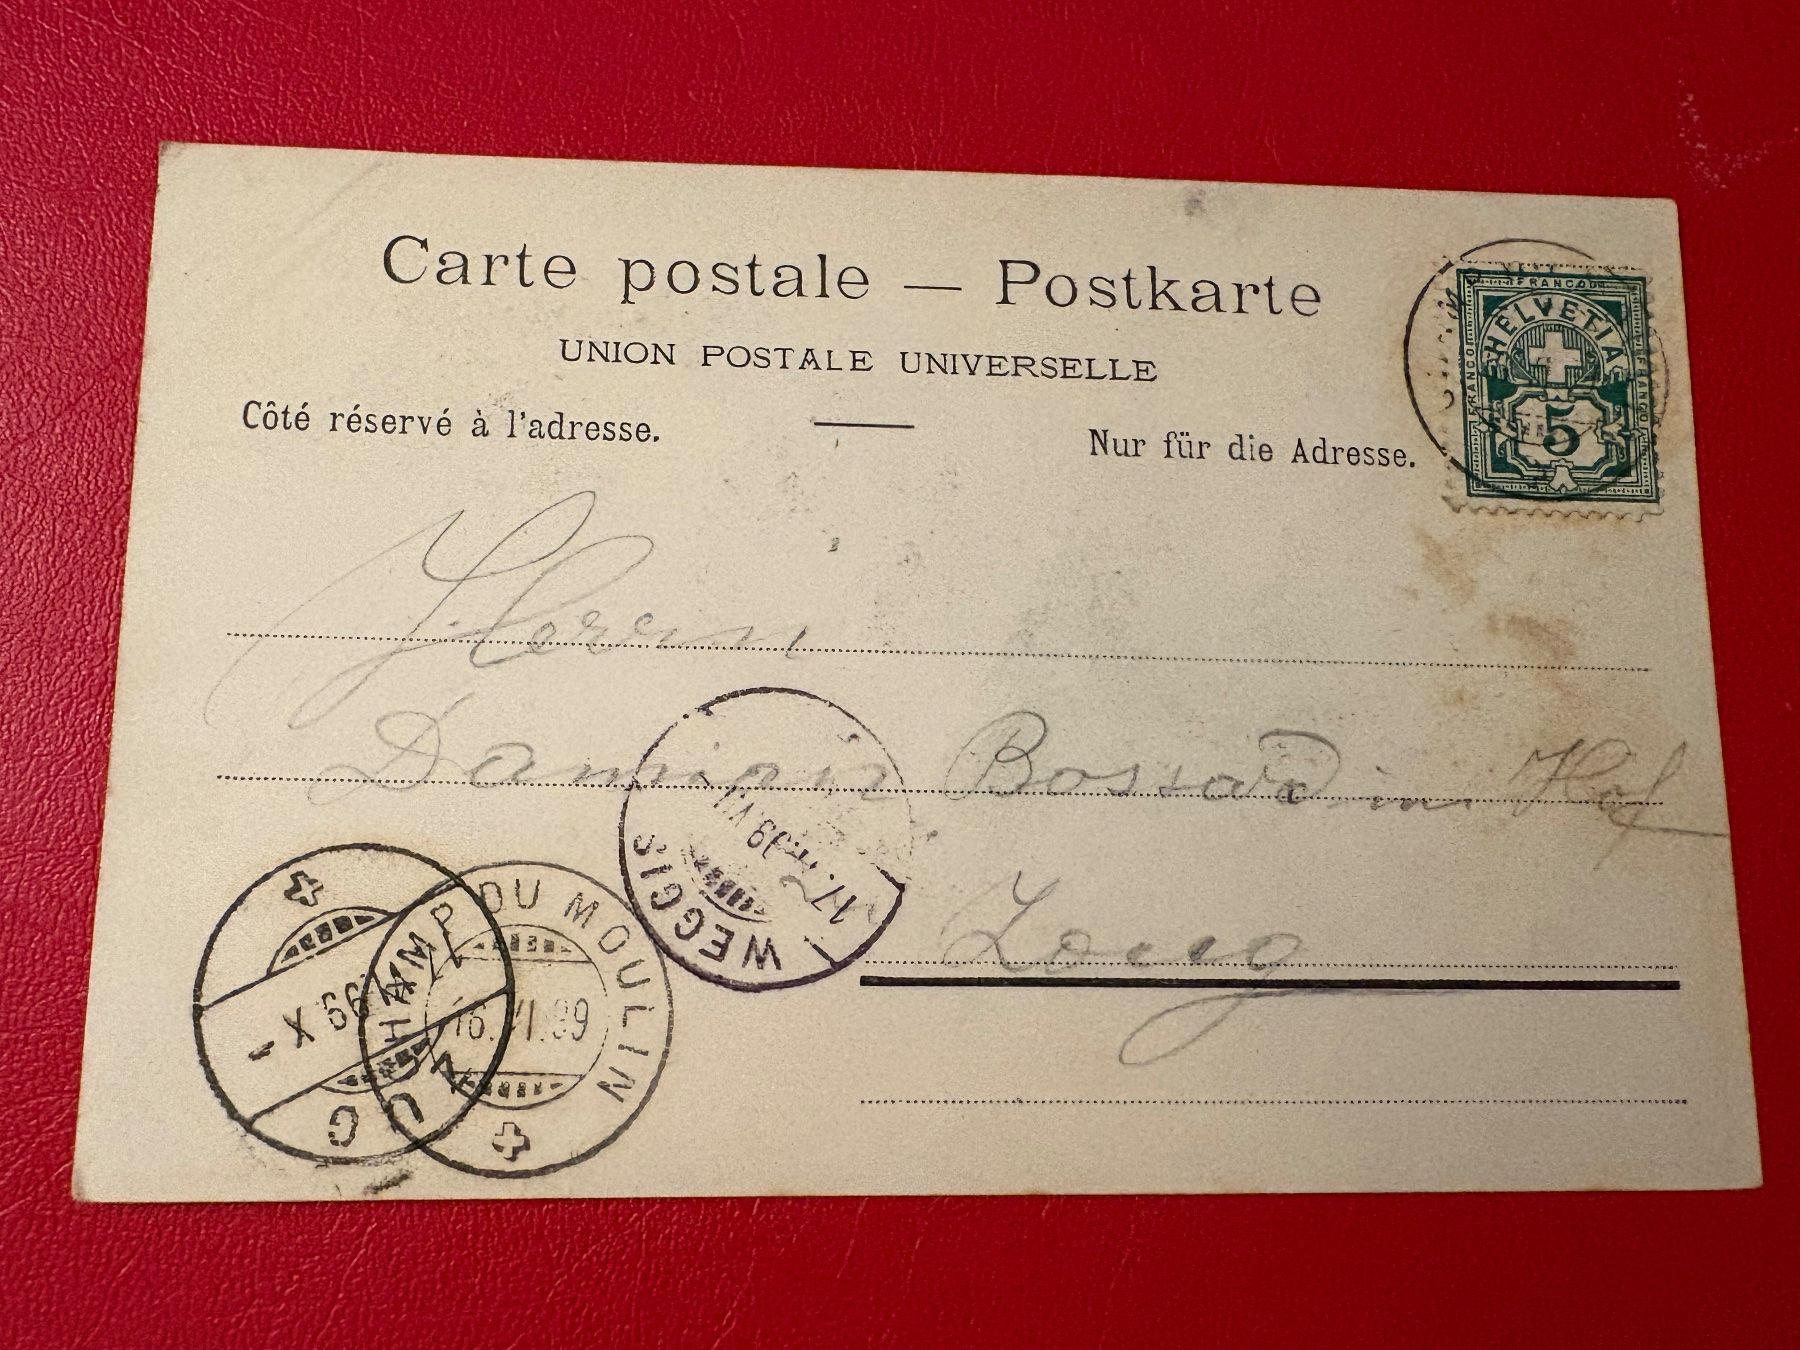 Carte postale — Postkarte
UNION POSTALE UNIVERSELLE
Côté réservé à l'adresse.
Nur für die Adresse.
FRANCO
HELVETIA
FRANCO
5
Herrn
Damian Bossard im Hof
Zoug
WEGGIS
17.
99
CHAMP DU MOULIN
16.VI.99
ZUG
X 99